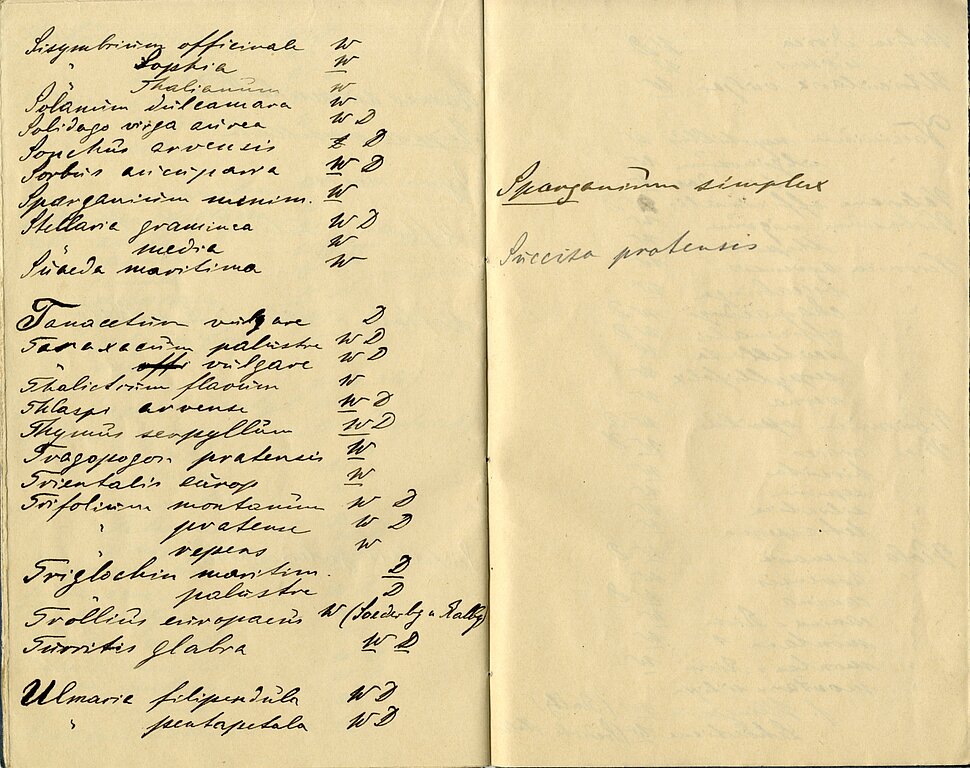 Sisymbrium officinale W
" Sophia W
Thalianum W
Solanum dulcamara W
Solidago virga aurea W D
Sonchus arvensis D
Sorbus aucuparia W D
Sparganium minim. W
Stellaria graminea W D
media W
Suaeda maritima W
Tanacetum vulgare D
Taraxacum palustre W D
offi vulgare W D
Thalictrum flavum W
Thlaspi arvense W D
Thymus serpyllum W D
Tragopogon pratensis W
Trientalis europ W
Trifolium montanum W D
" pratense W D
" repens W
Triglochin maritim. D
palustre D
Trollius europaeus W (Soederby u Ralby)
Turritis glabra W D
Ulmaria filipendula W D
" pentapetala W D
Sparganium simplex
Succisa pratensis